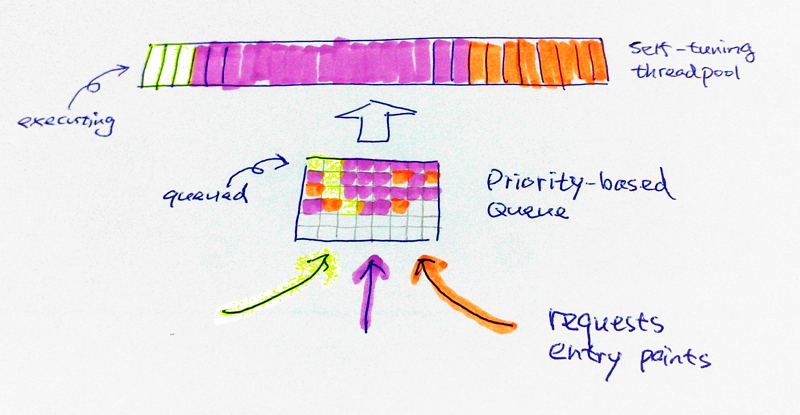 self-tuning
threadpool
executing
queued
Priority-based
Queue
requests
entry points